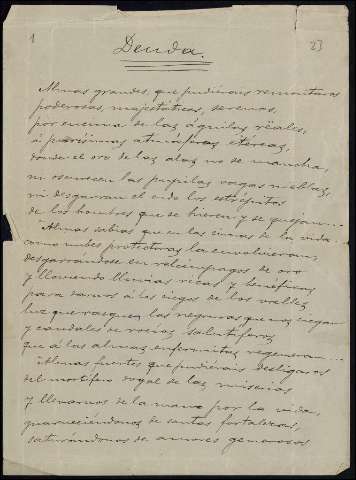 1
23
Deuda.
Almas grandes, que pudierais remontaros
poderosas, majestáticas, serenas,
por encima de las águilas reales,
á purísimas atmósferas etéreas,
donde el oro de las alas no se mancha,
ni oscurecen las pupilas vagas nieblas,
ni desgarran el oído los estrépitos
de los hombres que se hieren y se quejan...
Almas sabias que en las cimas de la vida
como nubes protectoras
desgarrándose en relámpagos de oro
y lloviendo lluvias ricas y benéficas
para darnos á los ciegos de los valles
luz que rasgue las negruras que nos ciegan
y caudales de rocíos salutíferos
que á las almas enfermitas regeneran...
Almas fuertes que pudierais desligaros
del mortífero dogal de las miserias
y llevarnos de la mano por la vida,
guareciéndonos de santas fortalezas,
saturándonos de amores generosos